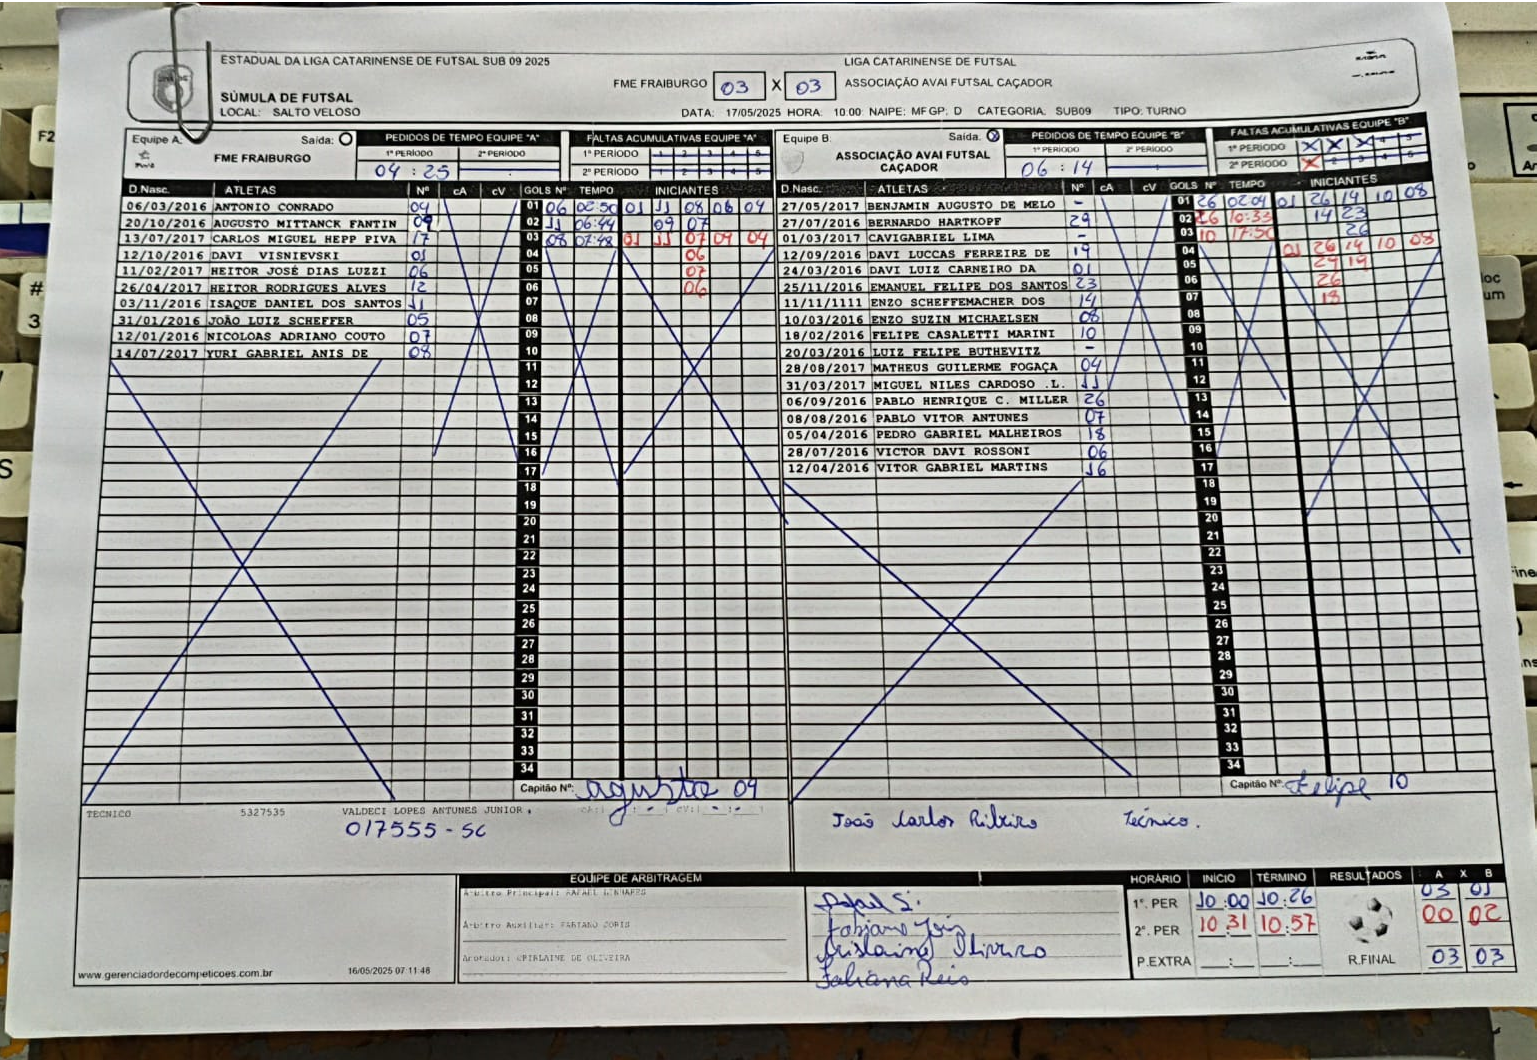 ESTADUAL DA LIGA CATARINENSE DE FUTSAL SUB 09 2025
LIGA CATARINENSE DE FUTSAL
FME FRAIBURGO 03 X 03 ASSOCIAÇÃO AVAI FUTSAL CAÇADOR
SÚMULA DE FUTSAL
LOCAL: SALTO VELOSO
DATA: 17/05/2025 HORA: 10:00 NAIPE: MF GP: D CATEGORIA: SUB09 TIPO: TURNO
Equipe A: Saída:
FME FRAIBURGO
PEDIDOS DE TEMPO EQUIPE "A"
1º PERÍODO 2º PERÍODO
04 : 25 :
FALTAS ACUMULATIVAS EQUIPE "A"
1º PERÍODO 1 2 3 4 5
2º PERÍODO 1 2 3 4 5
D.Nasc. ATLETAS Nº cA cV GOLS Nº TEMPO INICIANTES
06/03/2016 ANTONIO CONRADO 04 01 06 02:50 01 11 08 06 04
20/10/2016 AUGUSTO MITTANCK FANTIN 09 02 11 06:44 09 07
13/07/2017 CARLOS MIGUEL HEPP PIVA 17 03 08 07:48 01 11 07 09 04
12/10/2016 DAVI VISNIEVSKI 01 04 06
11/02/2017 HEITOR JOSÉ DIAS LUZZI 06 05 07
26/04/2017 HEITOR RODRIGUES ALVES 12 06 06
03/11/2016 ISAQUE DANIEL DOS SANTOS 11 07
31/01/2016 JOÃO LUIZ SCHEFFER 05 08
12/01/2016 NICOLOAS ADRIANO COUTO 07 09
14/07/2017 YURI GABRIEL ANIS DE 08 10
11
12
13
14
15
16
17
18
19
20
21
22
23
24
25
26
27
28
29
30
31
32
33
34
Capitão Nº: agusto 09
TECNICO 5327535 VALDECI LOPES ANTUNES JUNIOR
017555 - SC
Equipe B: Saída:
ASSOCIAÇÃO AVAI FUTSAL
CAÇADOR
PEDIDOS DE TEMPO EQUIPE "B"
1º PERÍODO 2º PERÍODO
06 : 14 :
FALTAS ACUMULATIVAS EQUIPE "B"
1º PERÍODO 4 5
2º PERÍODO 2 3 4 5
D.Nasc. ATLETAS Nº cA cV GOLS Nº TEMPO INICIANTES
27/05/2017 BENJAMIN AUGUSTO DE MELO - 01 26 02:04 01 26 14 10 08
27/07/2016 BERNARDO HARTKOPF 29 02 26 10:33 14 23
01/03/2017 CAVIGABRIEL LIMA - 03 10 17:50 26
12/09/2016 DAVI LUCCAS FERREIRE DE 19 04 01 26 14 10 08
24/03/2016 DAVI LUIZ CARNEIRO DA 01 05 29 19
25/11/2016 EMANUEL FELIPE DOS SANTOS 23 06 26
11/11/1111 ENZO SCHEFFEMACHER DOS 14 07 18
10/03/2016 ENZO SUZIN MICHAELSEN 08 08
18/02/2016 FELIPE CASALETTI MARINI 10 09
20/03/2016 LUIZ FELIPE BUTHEVITZ - 10
28/08/2017 MATHEUS GUILERME FOGAÇA 04 11
31/03/2017 MIGUEL NILES CARDOSO .L. 11 12
06/09/2016 PABLO HENRIQUE C. MILLER 26 13
08/08/2016 PABLO VITOR ANTUNES 07 14
05/04/2016 PEDRO GABRIEL MALHEIROS 18 15
28/07/2016 VICTOR DAVI ROSSONI 06 16
12/04/2016 VITOR GABRIEL MARTINS 16 17
18
19
20
21
22
23
24
25
26
27
28
29
30
31
32
33
34
Capitão Nº: Felipe 10
João Carlos Ribeiro Técnico.
EQUIPE DE ARBITRAGEM
Árbitro Principal: RAFAEL LINHARES
Árbitro Auxiliar: FABIANO JORIS
Anotador: CRISLAINE DE OLIVEIRA
Rafael S.
Crislaine Oliveira
Fabiana Reis
HORÁRIO INÍCIO TÉRMINO RESULTADOS A X B
1º. PER 10:00 10:26 03 01
2º. PER 10:31 10:57 00 02
P.EXTRA : : R.FINAL 03 03
www.gerenciadordecompeticoes.com.br 16/05/2025 07:11:46